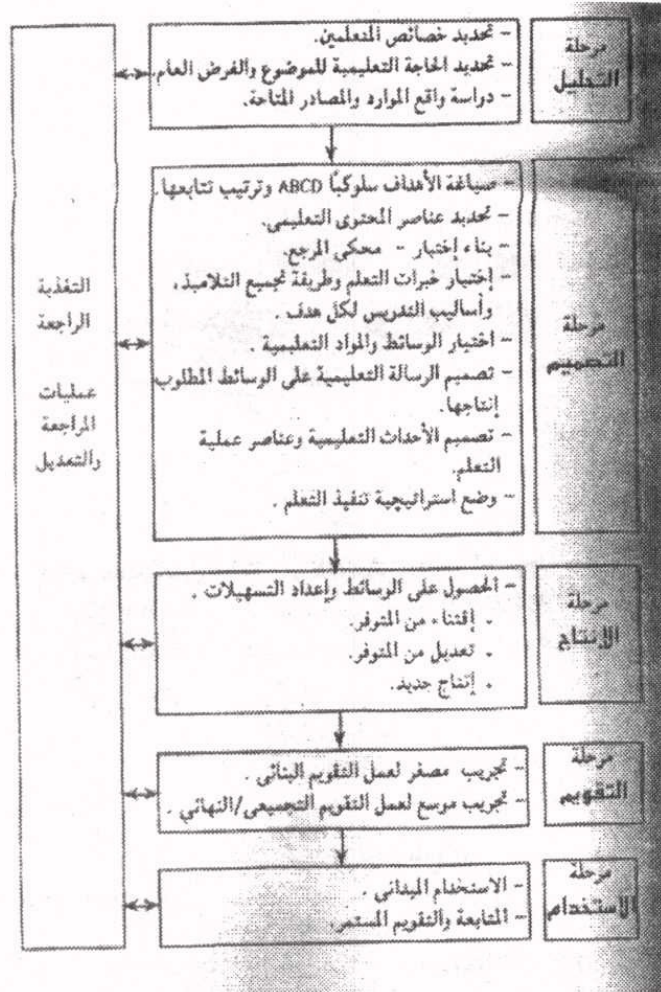 مرحلة
التحليل
- تحديد خصائص المتعلمين.
- تحديد الحاجة التعليمية للموضوع والغرض العام.
- دراسة واقع الموارد والمصادر المتاحة.
مرحلة
التصميم
- صياغة الأهداف سلوكيًا ABCD وترتيب تتابعها.
- تحديد عناصر المحتوى التعليمى.
- بناء إختبار - محكى المرجع.
- إختيار خبرات التعلم وطريقة تجميع التلاميذ،
وأساليب التدريس لكل هدف.
- اختيار الوسائط والمواد التعليمية.
- تصميم الرسالة التعليمية على الوسائط المطلوب
إنتاجها.
- تصميم الأحداث التعليمية وعناصر عملية
التعلم.
- وضع استراتيجية تنفيذ التعلم.
مرحلة
الإنتاج
- الحصول على الوسائط وإعداد التسهيلات.
. إقتناء من المتوفر.
. تعديل من المتوفر.
. إنتاج جديد.
مرحلة
التقويم
- تجريب مصغر لعمل التقويم البنائى.
- تجريب موسع لعمل التقويم التجميعى/النهائي.
مرحلة
الاستخدام
- الاستخدام الميدانى.
- المتابعة والتقويم المستمر.
التغذية
الراجعة
عمليات
المراجعة
والتعديل